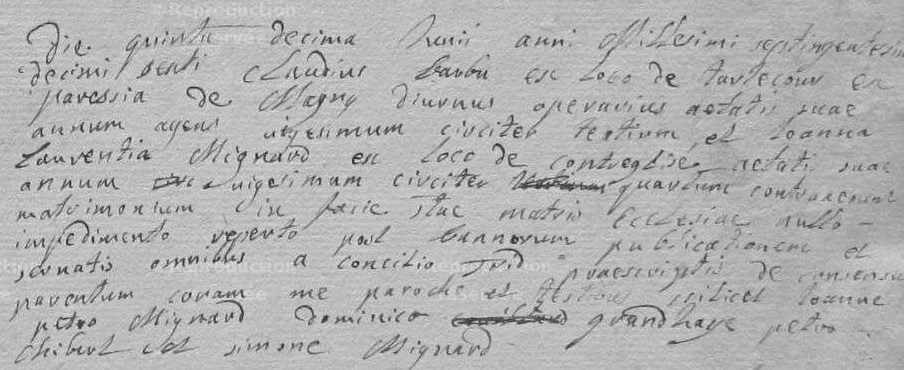 Die quinta decima Junii anni Millesimi septingentesimi
decimi sexti Claudius barbu ex loco de tartecour ex
paressia de Magny diurnus operarius aetatis suae
annum agens vigesimum circiter tertium et Joanna
Laurentia Mignard ex loco de contreglise aetatis suae
annum vigesimum circiter quartum contraxerunt
matrimonium in facie stae matris Ecclesiae nullo
impedimento reperto post bannorum publicationem et
servatis omnibus a concilio Trid praescriptis de consensu
parentum coram me parocho et testibus scilicet Joanne
petro Mignard dominico grandhaye petro
chibert et simone Mignard